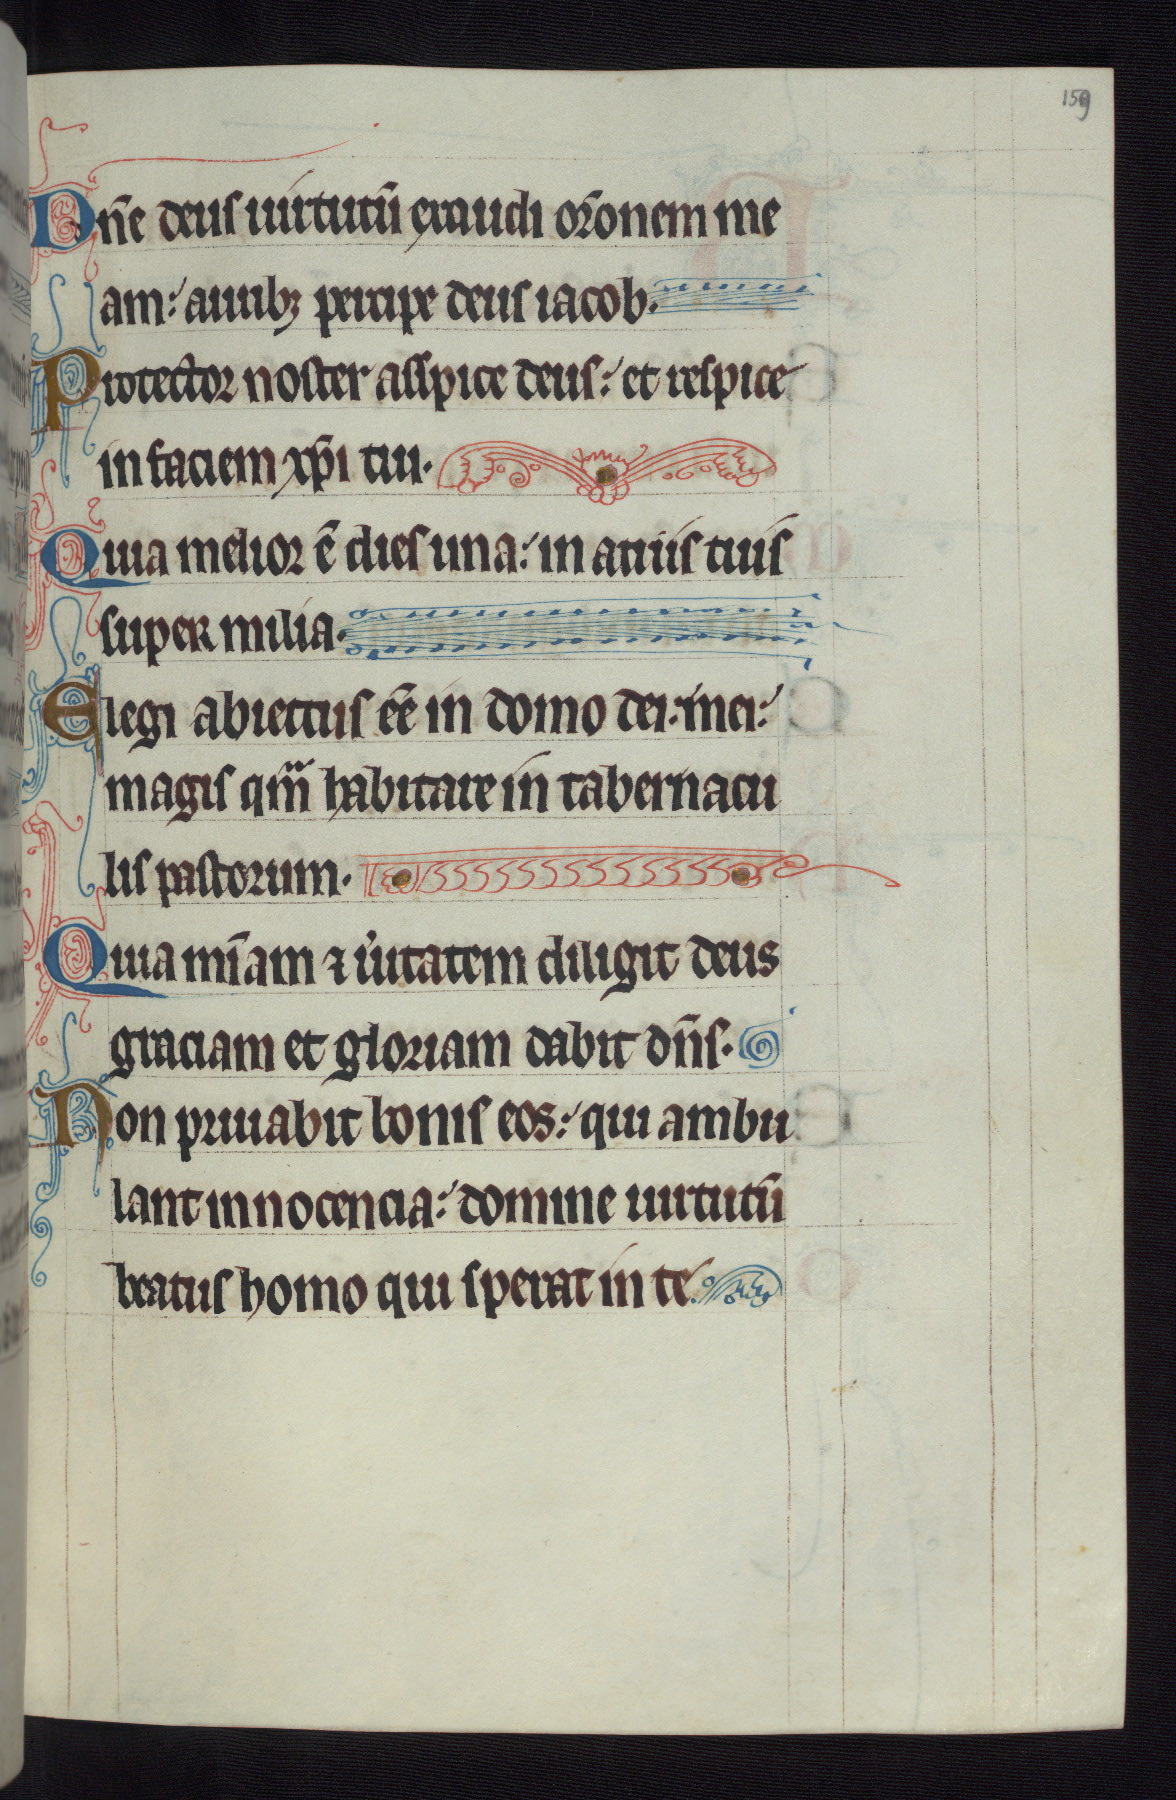 159
Dn̄e deus uirtutū exaudi or̄onem me
am: auribꝫ percipe deus iacob.
Protector noster asspice deus: et respice
in faciem xp̄i tui.
Quia melior ē dies una: in atriis tuis
super milia.
Elegi abiectus eē in domo dei mei:
magis qm̄ habitare in tabernacu
lis pastorum.
Quia mīam ⁊ u̾itatem diligit deus
graciam et gloriam dabit dn̄s.
Non priuabit bonis eos: qui ambu
lant innocencia: domine uirtutū
beatus homo qui sperat in te.